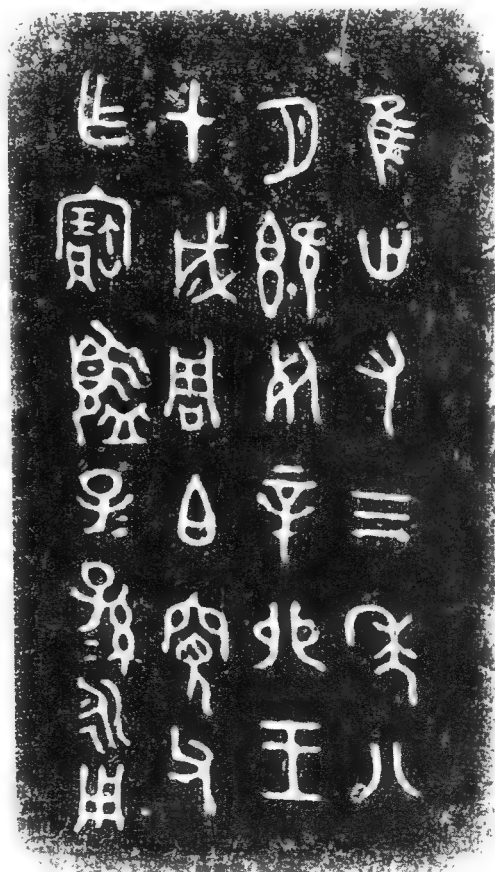 隹卅又三年八
月既死辛卯王
才成周白寬父
乍寶盨子=孫=永用